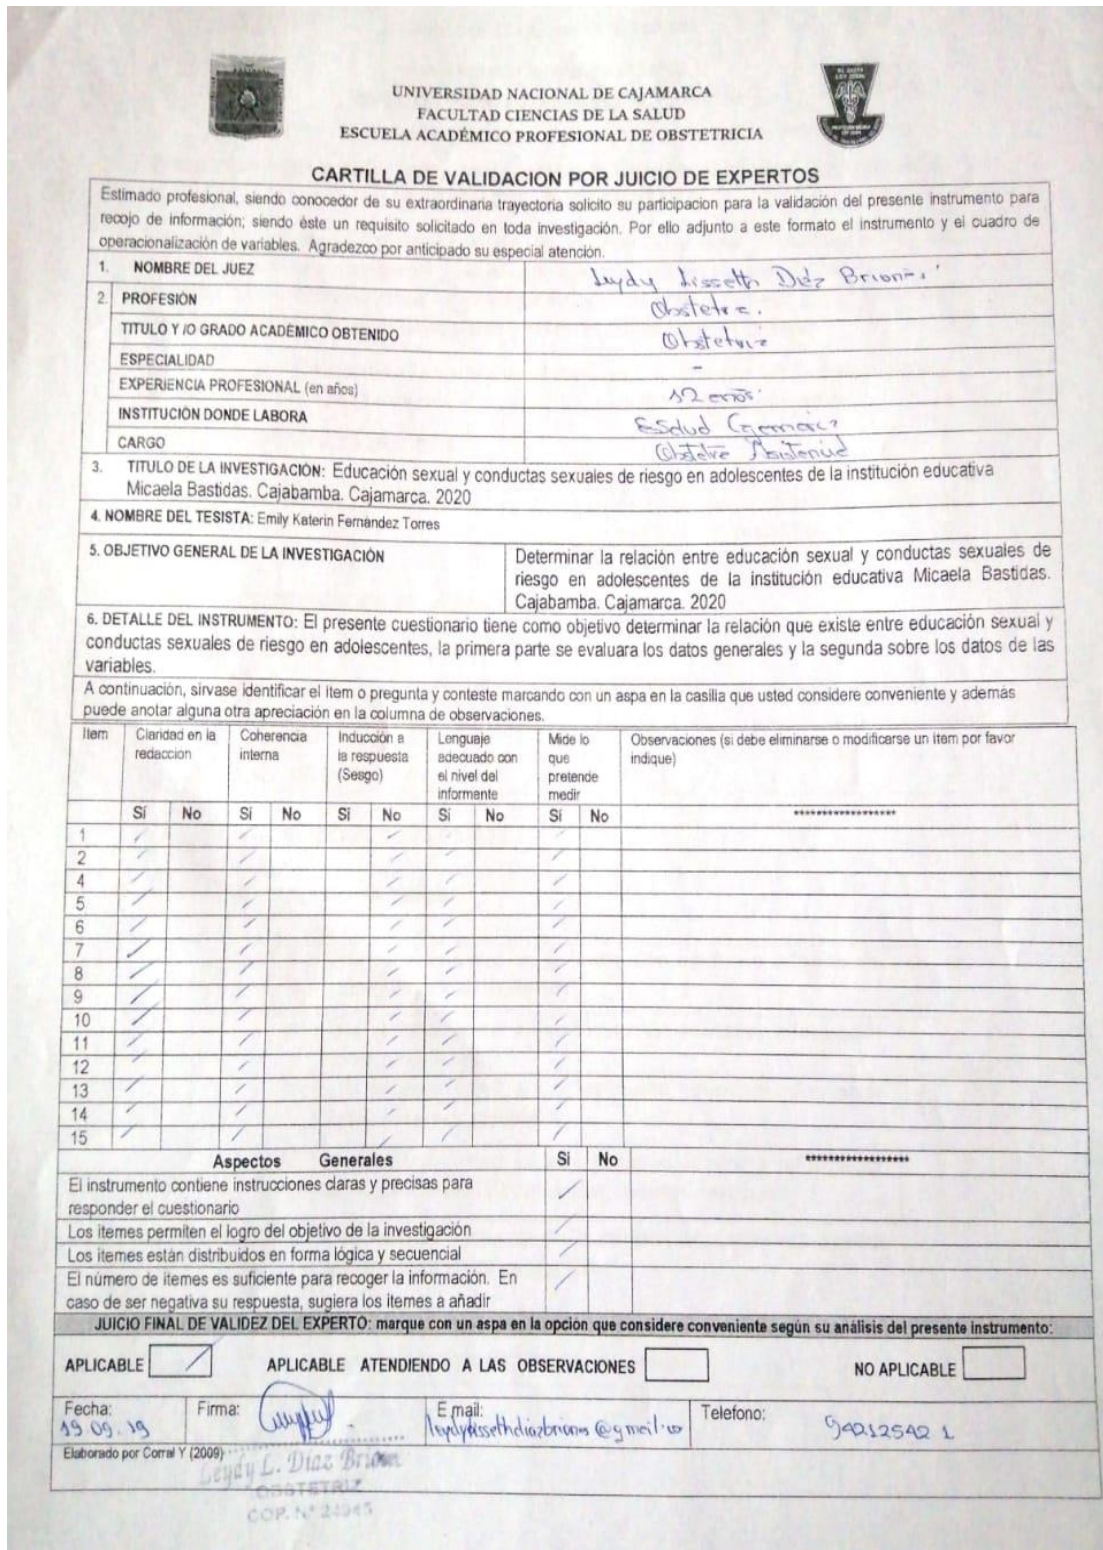 UNIVERSIDAD NACIONAL DE CAJAMARCA
FACULTAD CIENCIAS DE LA SALUD
ESCUELA ACADÉMICO PROFESIONAL DE OBSTETRICIA
CARTILLA DE VALIDACION POR JUICIO DE EXPERTOS
Estimado profesional, siendo conocedor de su extraordinaria trayectoria solicito su participacion para la validación del presente instrumento para
recojo de información; siendo éste un requisito solicitado en toda investigación. Por ello adjunto a este formato el instrumento y el cuadro de
operacionalización de variables. Agradezco por anticipado su especial atención.
1. NOMBRE DEL JUEZ Leydy Lisseth Díaz Briones
2. PROFESIÓN Obstetra.
TITULO Y /O GRADO ACADÉMICO OBTENIDO Obstetriz
ESPECIALIDAD -
EXPERIENCIA PROFESIONAL (en años) 12 años
INSTITUCIÓN DONDE LABORA EsSalud Cajamarca
CARGO Obstetra Asistencial
3. TITULO DE LA INVESTIGACIÓN: Educación sexual y conductas sexuales de riesgo en adolescentes de la institución educativa
Micaela Bastidas. Cajabamba. Cajamarca. 2020
4. NOMBRE DEL TESISTA: Emily Katerin Fernández Torres
5. OBJETIVO GENERAL DE LA INVESTIGACIÓN Determinar la relación entre educación sexual y conductas sexuales de
riesgo en adolescentes de la institución educativa Micaela Bastidas.
Cajabamba. Cajamarca. 2020
6. DETALLE DEL INSTRUMENTO: El presente cuestionario tiene como objetivo determinar la relación que existe entre educación sexual y
conductas sexuales de riesgo en adolescentes, la primera parte se evaluara los datos generales y la segunda sobre los datos de las
variables.
A continuación, sirvase identificar el ítem o pregunta y conteste marcando con un aspa en la casilla que usted considere conveniente y además
puede anotar alguna otra apreciación en la columna de observaciones.
Item Claridad en la redaccion Coherencia interna Inducción a la respuesta (Sesgo) Lenguaje adecuado con el nivel del informante Mide lo que pretende medir Observaciones (si debe eliminarse o modificarse un item por favor indique)
Sí No Sí No Sí No Sí No Sí No ******************
1
2
4
5
6
7
8
9
10
11
12
13
14
15
Aspectos Generales Si No ******************
El instrumento contiene instrucciones claras y precisas para
responder el cuestionario
Los itemes permiten el logro del objetivo de la investigación
Los itemes están distribuidos en forma lógica y secuencial
El número de itemes es suficiente para recoger la información. En
caso de ser negativa su respuesta, sugiera los itemes a añadir
JUICIO FINAL DE VALIDEZ DEL EXPERTO: marque con un aspa en la opción que considere conveniente según su análisis del presente instrumento:
APLICABLE APLICABLE ATENDIENDO A LAS OBSERVACIONES NO APLICABLE
Fecha: Firma: E mail: Telefono:
19.09.19 leydylissethdiazbriones@gmail.co 942125421
Elaborado por Corral Y (2009)
Leydy L. Díaz Briones
OBSTETRIZ
COP. N°